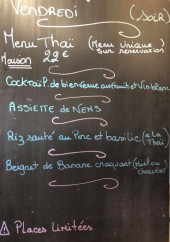 VENDREDI (SOIR)
Menu Thaï (Menu unique
sur réservation)
Maison 22 €
Cocktail P. de bienvenue au fruit et Vin blanc
ASSIETTE de NEMS
Riz sauté au Porc et basilic (à la
Thaï)
Beignet de Banane craquant (Miel ou
chocolat)
⚠ Places Limitées